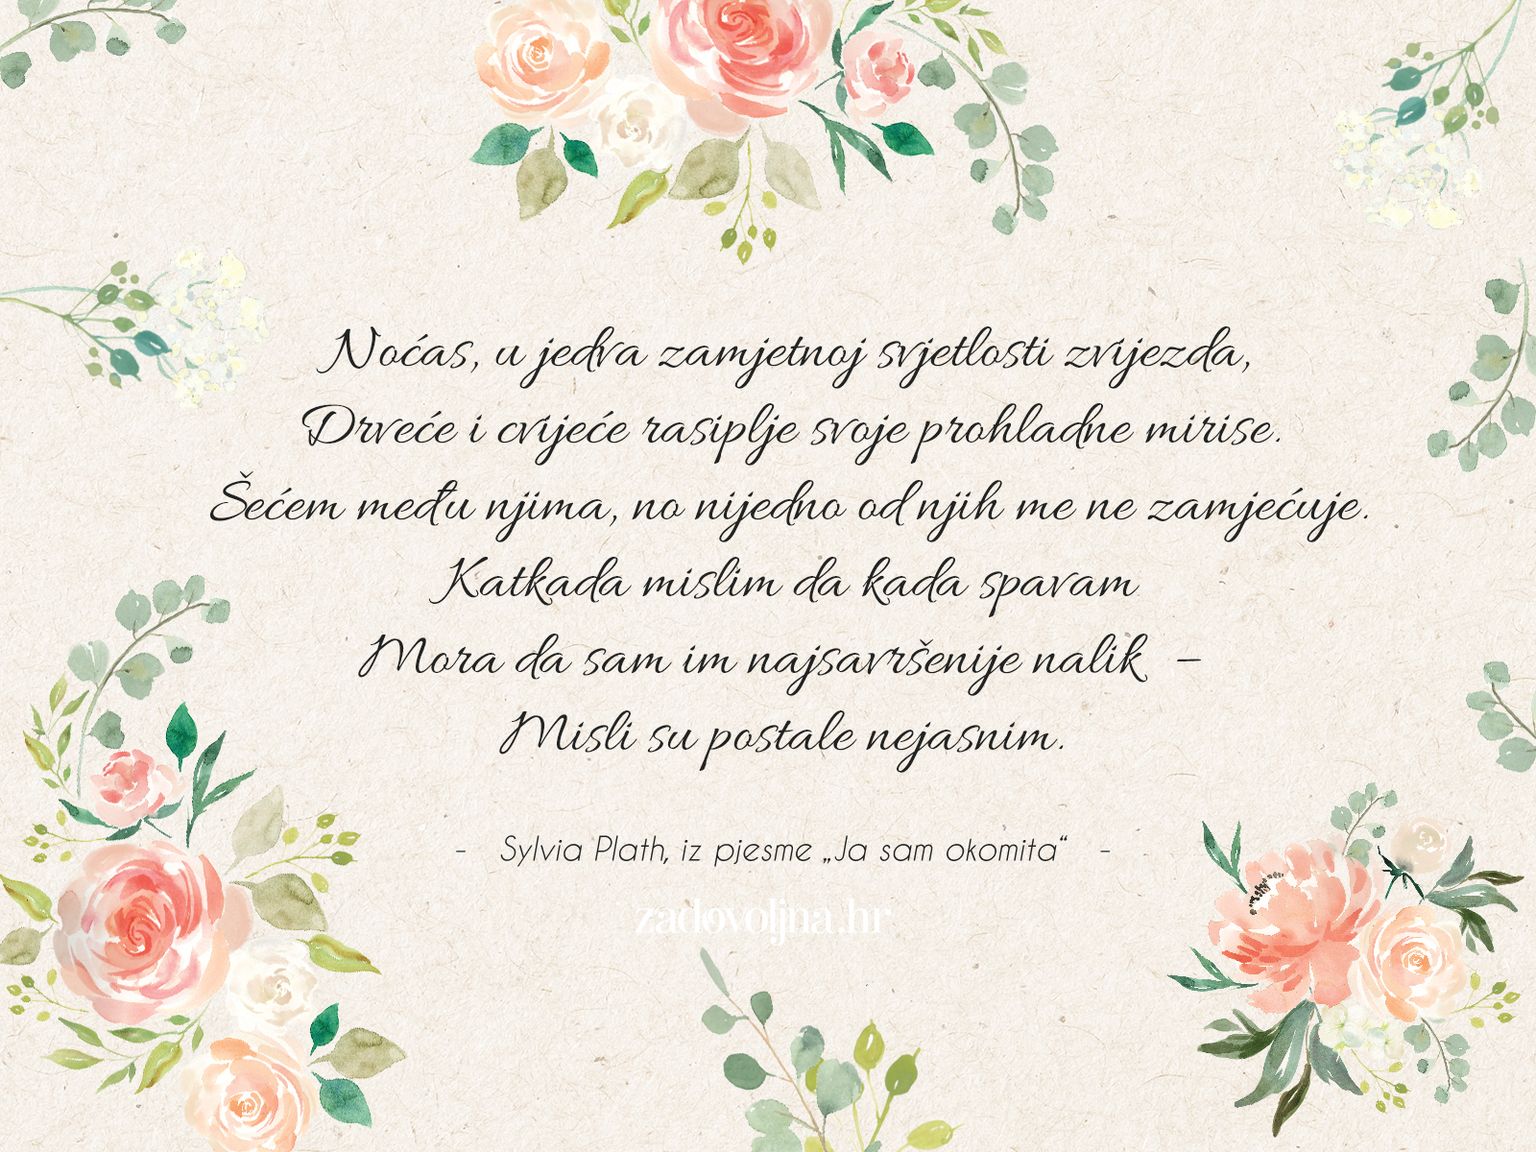 Noćas, u jedva zamjetnoj svjetlosti zvijezda,
Drveće i cvijeće rasiplje svoje prohladne mirise.
Šećem među njima, no nijedno od njih me ne zamjećuje.
Katkada mislim da kada spavam
Mora da sam im najsavršenije nalik –
Misli su postale nejasnim.
- Sylvia Plath, iz pjesme „Ja sam okomita“ -
zadovoljna.hr